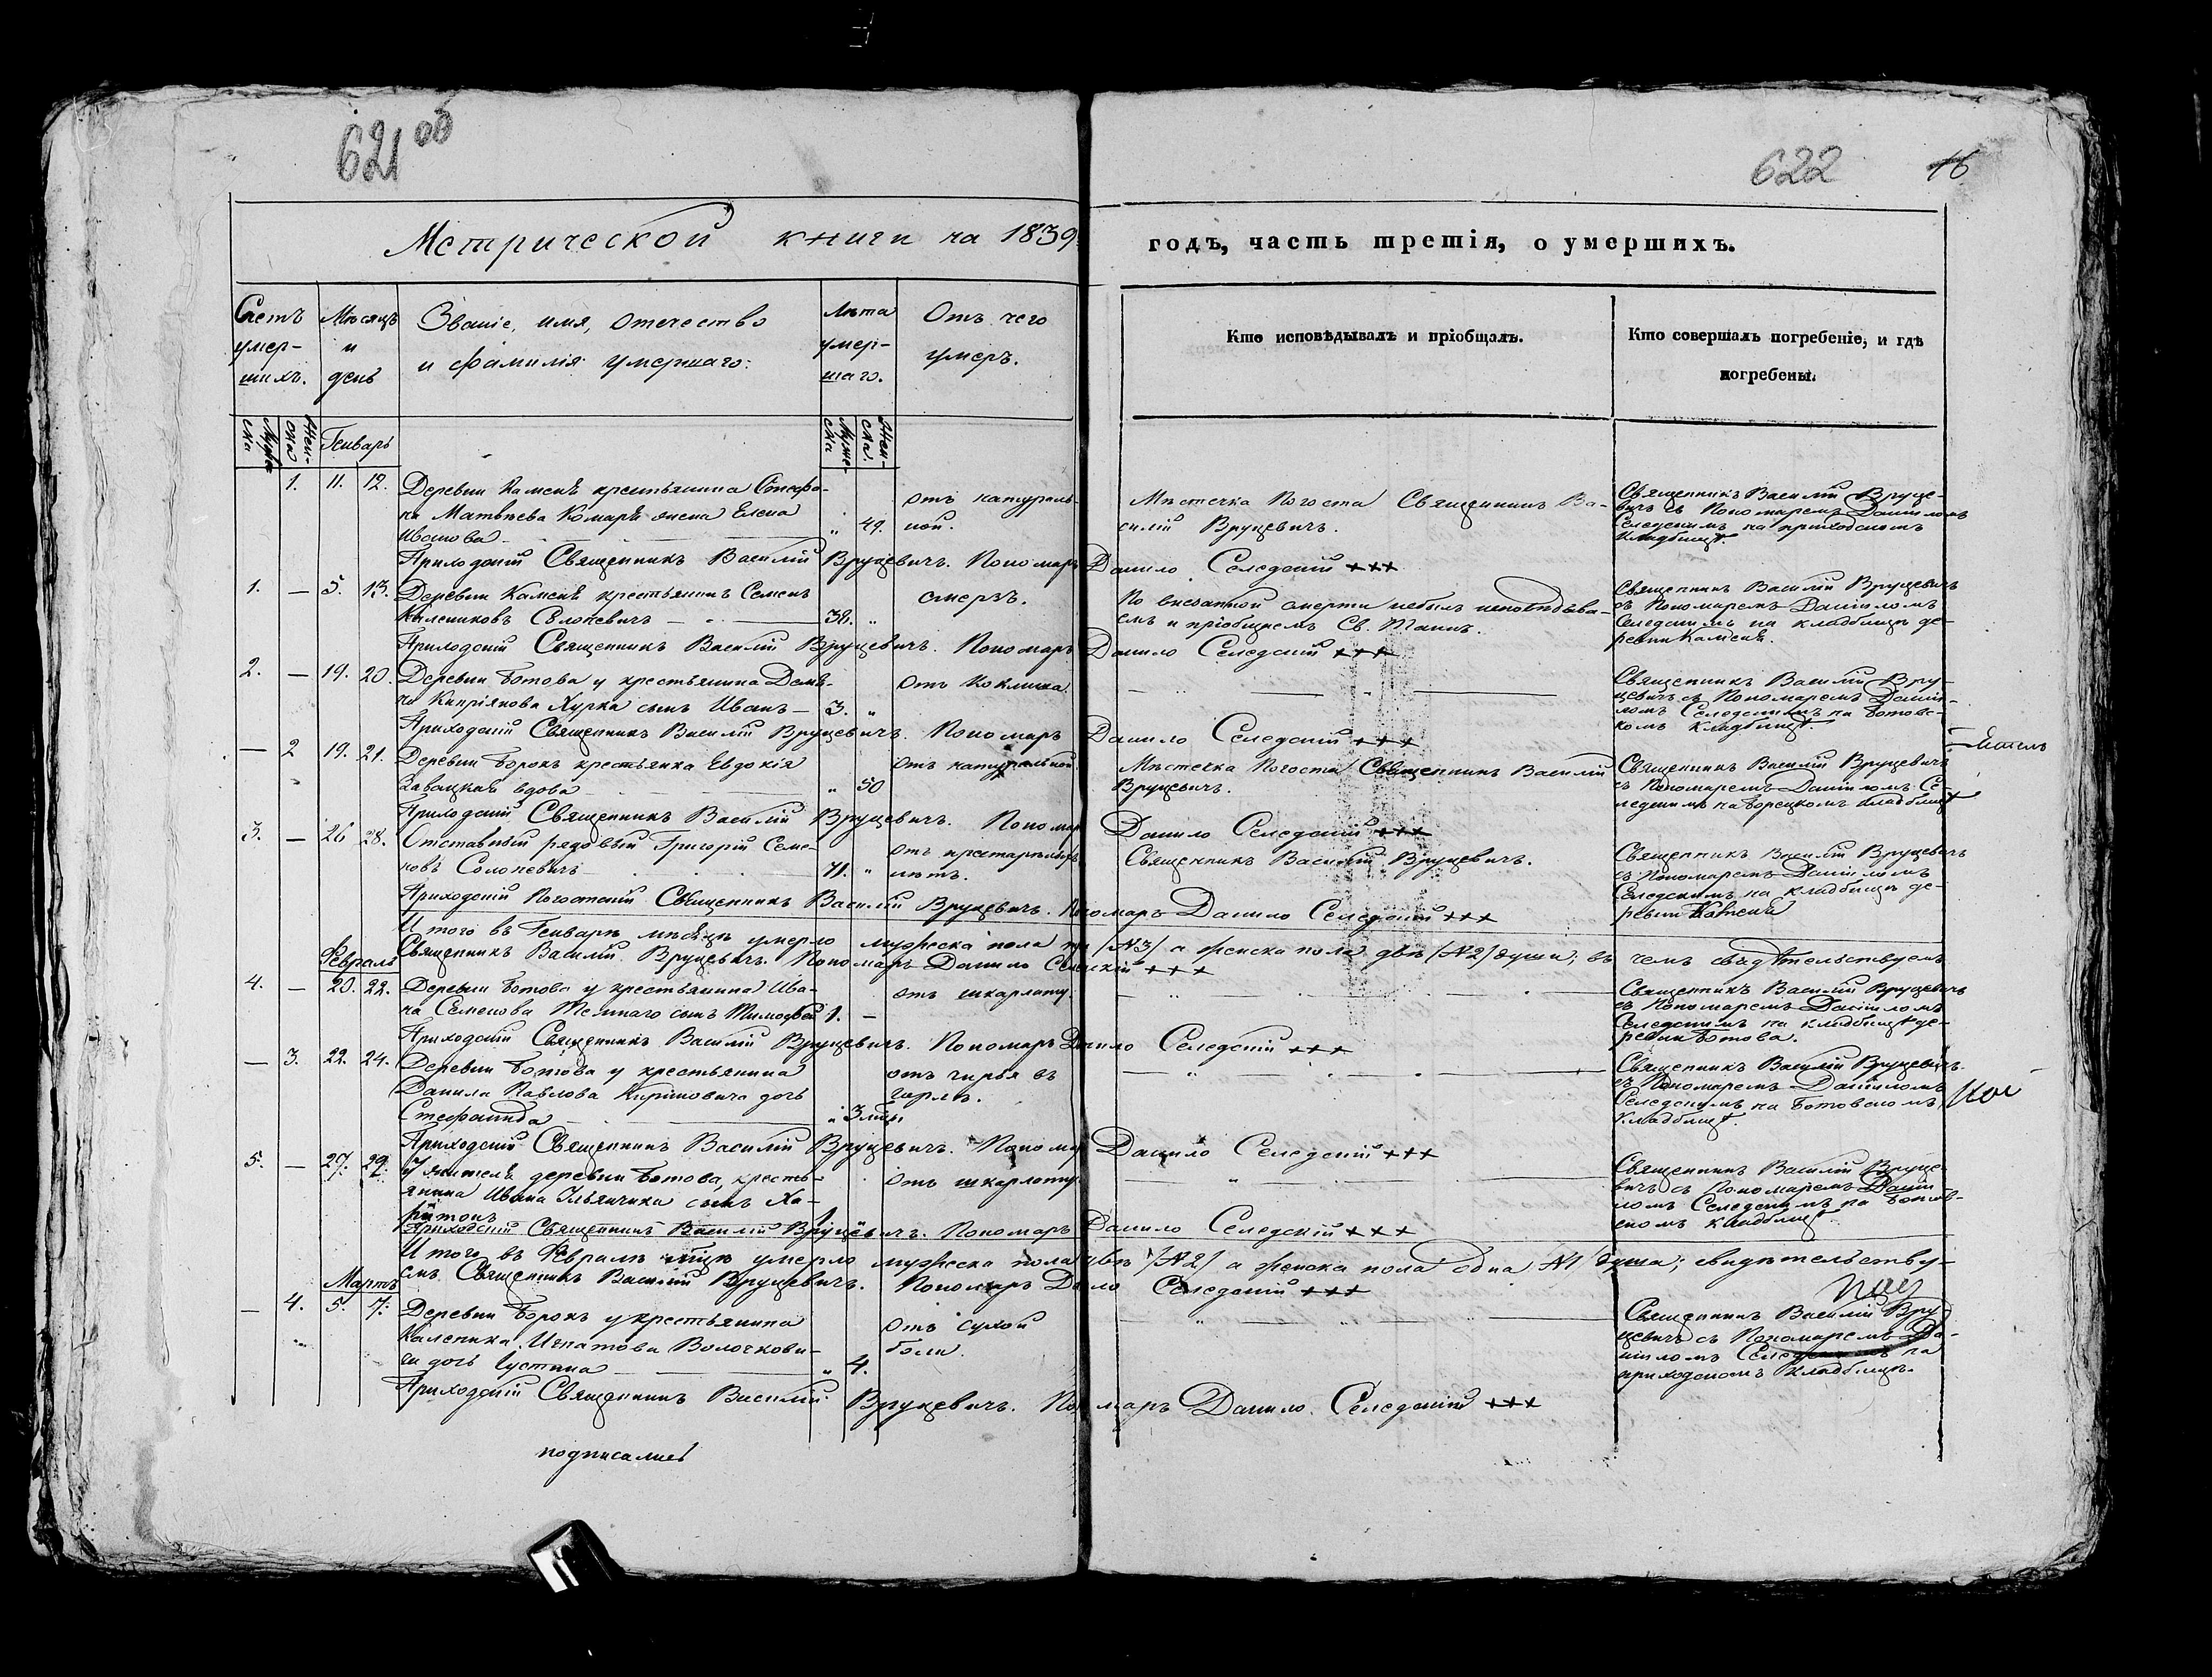 621 об
622 16
Метрической книги на 1839 годъ, часть третія, о умершихъ.
Счетъ умер-шихъ.
Мѣсяцъ и день
Званіе, имя, отечество
и фамилія умершаго:
Лѣта умер-шаго.
Отъ чего
умеръ.
Кто исповѣдывалъ и пріобщалъ.
Кто совершалъ погребеніе, и гдѣ
погребены.
Муже-ска
Жен-ска
Генварь
Муже-ска
Жен-ска.
1. 11. 12. Деревни Каменѣ крестьянина Стефа-
на Матвѣева Комара жена Елена
Иванова „ 49.
отъ натураль-
ной.
Мѣстечка Погоста Священникъ Ва-
силій Вруцевичъ.
Священникъ Василій Вруце-
вичъ съ Пономаремъ Даніиломъ
Селедскимъ на приходскомъ
кладбищѣ.
Приходскій Священникъ Василій Вруцевичъ. Пономарь Данило Селедскій +++
1. — 5. 13. Деревни Каменѣ крестьянинъ Семенъ
Солоневичъ — 38. „
смерзъ.
По внезапной смерти небылъ исповѣдыва-
емъ и пріобщаемъ Св. Таинъ.
Священникъ Василій Вруцевичъ
съ Пономаремъ Даніиломъ
Селедскимъ на кладбищѣ де-
ревни Каменѣ.
Приходскій Священникъ Василій Вруцевичъ. Пономарь Данило Селедскій +++
2. — 19. 20. Деревни Ботова у крестьянина Демья-
на Кипріянова Хурса сынъ Иванъ — 3. „
отъ коклюша.
Священникъ Василій Вру-
цевичъ съ Пономаремъ Даніи-
ломъ Селедскимъ на Ботовс-
комъ кладбищѣ.
Приходскій Священникъ Василій Вруцевичъ. Пономарь Данило Селедскій +++
— 2 19. 21. Деревни Борокъ крестьянка Евдокія
Завацкая вдова „ 50
отъ натуральной.
Мѣстечка Погоста Священникъ Василій
Вруцевичъ.
Священникъ Василій Вруцевичъ
съ Пономаремъ Даніиломъ Се-
ледскимъ на Борецкомъ кладбищѣ
Приходскій Священникъ Василій Вруцевичъ. Пономарь Данило Селедскій +++
3. — 26 28. Отставный рядовый Григорій Семе-
новъ Солоневичъ 71. „
отъ престарѣлыхъ
лѣтъ.
Священникъ Василій Вруцевичъ.
Священникъ Василій Вруцевичъ
съ Пономаремъ Даніиломъ
Селедскимъ на кладбищѣ де-
ревни Каменѣ
Приходскій Погостскій Священникъ Василій Вруцевичъ. Пономарь Данило Селедскій +++
Итого въ Генварѣ мѣсяцѣ умерло мужеска пола три /№3/ а женска пола двѣ /№2/ души; въ чемъ свидѣтельствуемъ
Священникъ Василій Вруцевичъ. Пономарь Данило Селедскій +++
Февраль
4. — 20. 22. Деревни Ботова у крестьянина Ива-
на Семенова Темнаго сынъ Тимофей 1. —
отъ шкарлату.
Священникъ Василій Вруцевичъ
съ Пономаремъ Даніиломъ
Селедскимъ на кладбищѣ де-
ревни Ботова.
Приходскій Священникъ Василій Вруцевичъ. Пономарь Данило Селедскій +++
— 3. 22. 24. Деревни Ботова у крестьянина
Данила Павлова дочь
Стефанида „ 3
отъ чирья въ
горлѣ.
Священникъ Василій Вруцевичъ.
съ Пономаремъ Даніиломъ
Селедскимъ на Ботовскомъ
кладбищѣ.
Приходскій Священникъ Василій Вруцевичъ. Пономарь Данило Селедскій +++
5. — 27. 29. У жителя деревни Ботова, кресть-
янина Ивана Ильянчика сынъ Ха-
ритонъ 1
отъ шкарлату.
Священникъ Василій Вруце-
вичъ съ Пономаремъ Даніи-
ломъ Селедскимъ на Ботов-
скомъ кладбищѣ.
Приходскій Священникъ Василій Вруцевичъ. Пономарь Данило Селедскій +++
Итого въ Февралѣ мѣсяцѣ умерло мужеска пола двѣ /№2/ а женска пола одна №1 душа; свидѣтельству-
емъ Священникъ Василій Вруцевичъ. Пономарь Данило Селедскій +++
Мартъ
— 4. 5. 7. Деревни Борокъ у крестьянина
Каленика Игнатова Волочкови-
ча дочь Густина „ 4.
отъ сухой
боли.
Священникъ Василій Вру
цевичъ съ Пономаремъ Да-
ніиломъ Селедскимъ на
приходскомъ кладбищѣ.
Приходскій Священникъ Василій Вруцевичъ. Пономарь Данило Селедскій +++
подписались